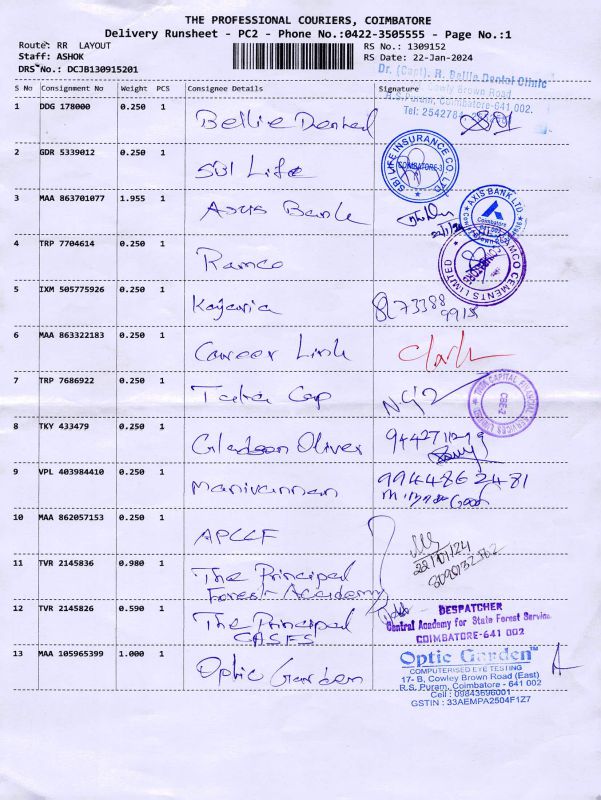 THE PROFESSIONAL COURIERS, COIMBATORE
Delivery Runsheet - PC2 - Phone No.:0422-3505555 - Page No.:1
Route: RR LAYOUT
RS No.: 1309152
Staff: ASHOK
RS Date: 22-Jan-2024
DRS No.: DCJB130915201
Dr. (Capt). R. Bellie Dental Clinic
Cowly Brown Road
R.S. Puram, Coimbatore-641 002.
Tel: 2542784
S No Consignment No Weight PCS Consignee Details Signature
1 DDG 178000 0.250 1 Bellie Dental
2 GDR 5339012 0.250 1 SBI Life
SBI LIFE INSURANCE CO LTD
COIMBATORE-3
3 MAA 863701077 1.955 1 Axis Bank
AXIS BANK LTD
Coimbatore
4 TRP 7704614 0.250 1 Ramco
CEMENTS LIMITED
5 IXM 505775926 0.250 1 Kajaria
6 MAA 863322183 0.250 1 Career Link
7 TRP 7686922 0.250 1 Tata Cap
TATA CAPITAL FINANCIAL SERVICES LIMITED
CBE-2
8 TKY 433479 0.250 1 Gladson Oliver
9 VPL 403984410 0.250 1 Manivannan 9944862481
10 MAA 862057153 0.250 1 APCCF
22/01/24
11 TVR 2145836 0.980 1 The Principal
Forest Academy
12 TVR 2145826 0.590 1 The Principal
CASFS
DESPATCHER
Central Academy for State Forest Service
COIMBATORE-641 002
13 MAA 105965399 1.000 1 Optic Garden
Optic Garden™
COMPUTERISED EYE TESTING
17- B, Cowley Brown Road (East)
R.S. Puram, Coimbatore - 641 002
Cell : 09843696001
GSTIN : 33AEMPA2504F1Z7